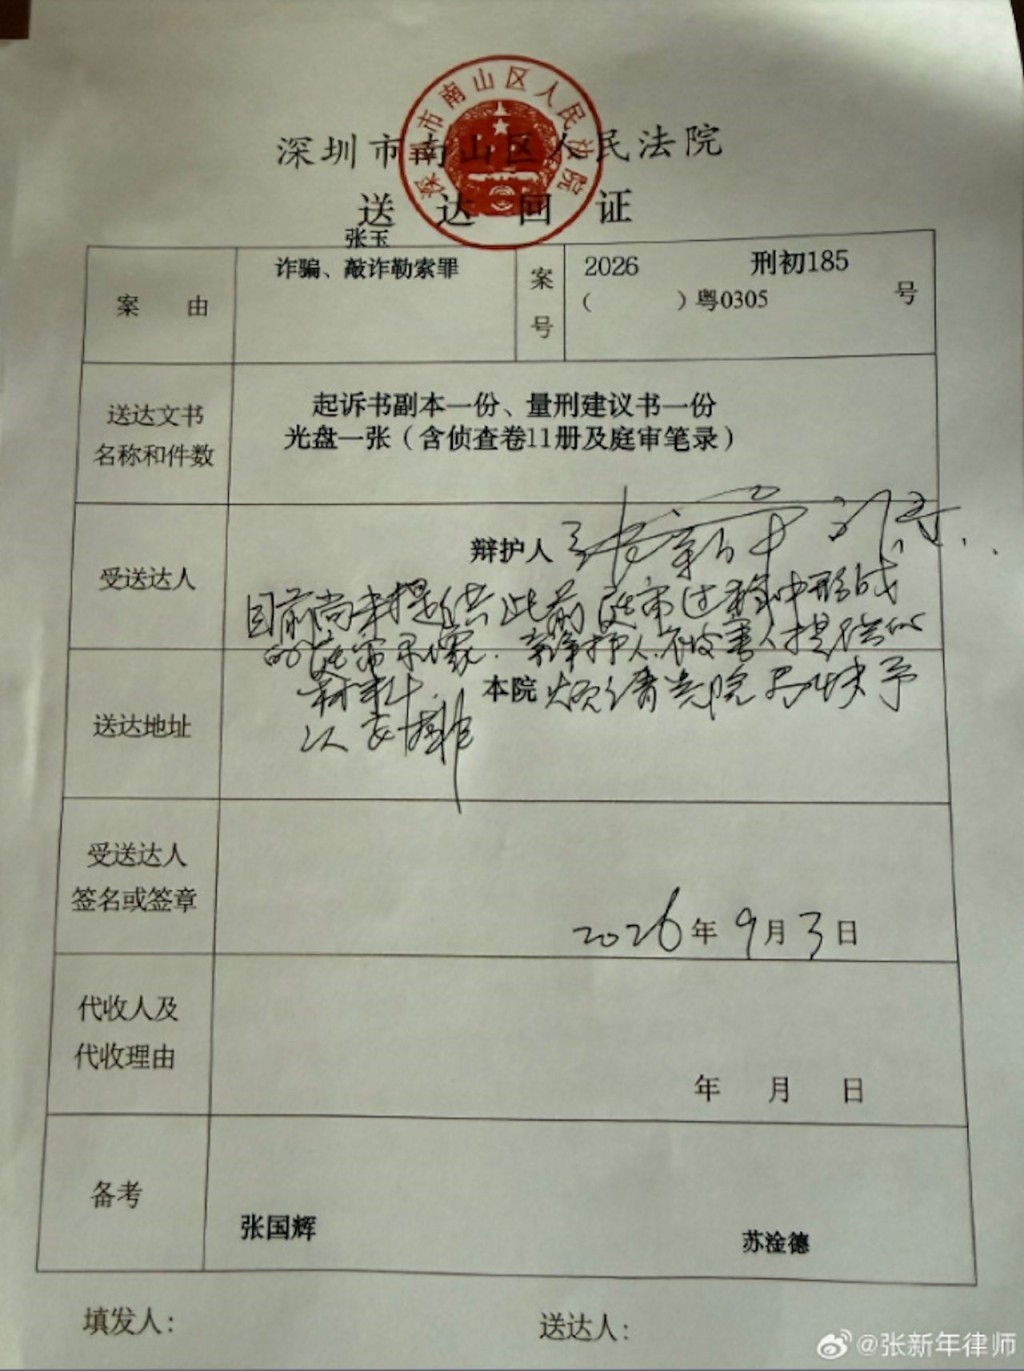 深圳市南山区人民法院
深圳市南山区人民法院
送达回证
张玉
诈骗、敲诈勒索罪
案由
案号
2026 刑初185
( )粤0305 号
送达文书
名称和件数
起诉书副本一份、量刑建议书一份
光盘一张（含侦查卷11册及庭审笔录）
受送达人
辩护人 张新年
目前尚未提供此前庭审过程中形成
的庭审录像、辩护人、被害人提供的
材料。
送达地址
本院 烦请贵院尽快予
以安排
受送达人
签名或签章
2026年9月3日
代收人及
代收理由
年 月 日
备考
张国辉
苏淦德
填发人：
送达人：
@张新年律师